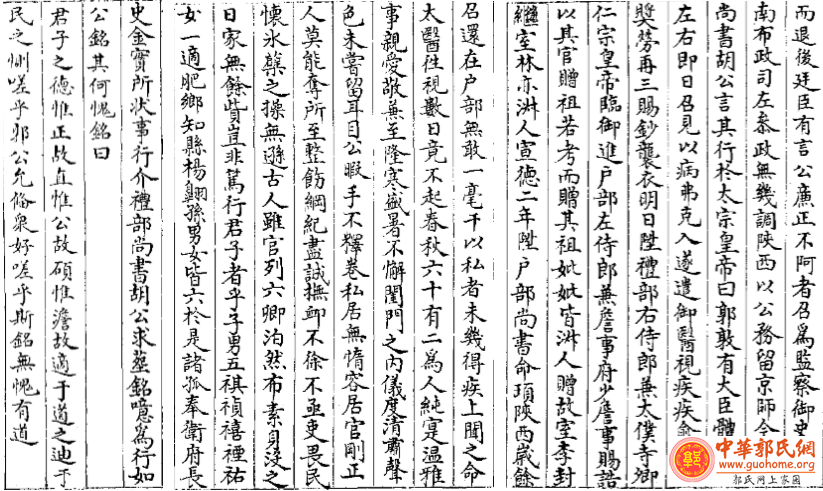 而退後廷臣有言公廉正不阿者召爲監察御史
南布政司左叅政無幾調陝西以公務留京師令
尚書胡公言其行於太宗皇帝曰郭敦有大臣體
左右即日召見以病弗克入遂遣御醫視疾疾
奬勞再三賜鈔襲衣明日陞禮部右侍郎兼太僕寺卿
仁宗皇帝臨御進戶部左侍郎兼詹事府少詹事賜誥
以其官贈祖若考而贈其祖妣妣皆淋人贈故室李封
繼室林亦淋人宣德二年陞戶部尚書命頊陝西歲餘
召還在戶部無敢一毫干以私者未幾得疾上聞之命
太醫徃視數日竟不起春秋六十有二爲人純寔温雅
事親愛敬兼至隆寒盛暑不懈閨門之内儀度清肅聲
色未嘗留耳目公暇手不釋卷私居無惰容居官剛正
人莫能奪所至整飭綱紀盡誠撫卹不徐不亟吏畏民
懷氷蘗之操無遜古人雖官列六卿泊然布素身没之
日家無餘貲豈非篤行君子者乎子男五祺禎禧禋祐
女一適肥鄉知縣楊翺孫男女皆六於是諸孤奉衛府長
史金實所狀事行介禮部尚書胡公求墓銘噫爲行如
公銘其何愧銘曰
君子之德惟正故直惟公故碩惟澹故適于道之迪于
民之恤嗟乎郭公允脩衆好嗟乎斯銘無愧有道
中華郭氏網
www.guohome.org
郭氏网上家园